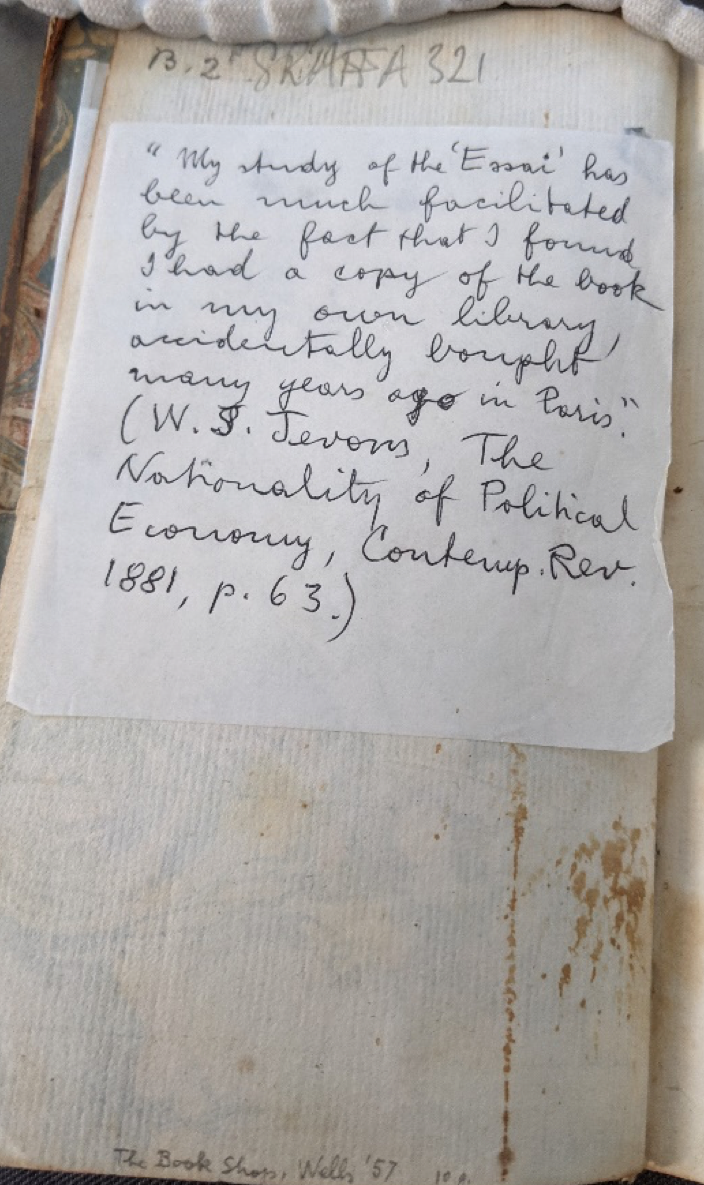 B.2 SRAFFA 321
"My study of the 'Essai' has
been much facilitated
by the fact that I found
I had a copy of the book
in my own library,
accidentally bought
many years ago in Paris".
(W. S. Jevons, The
Nationality of Political
Economy, Contemp. Rev.
1881, p. 63.)
The Book Shop, Wells '57